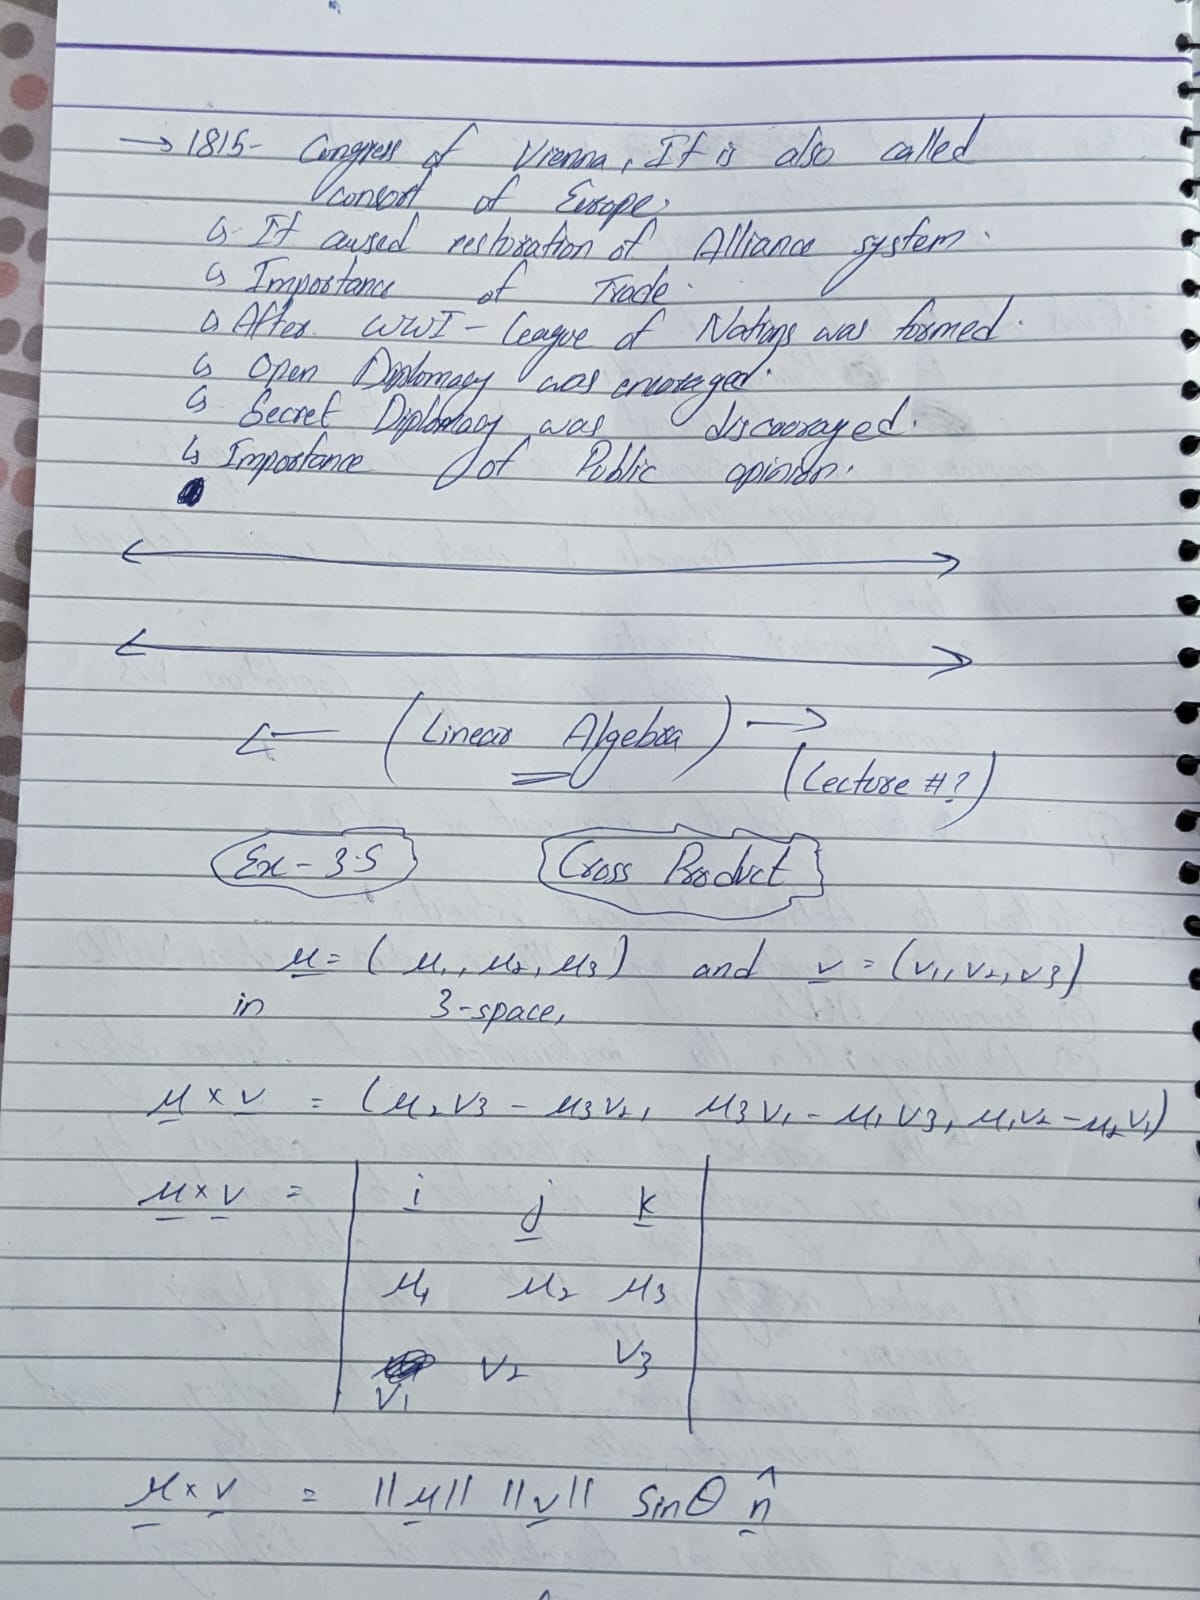 → 1815- Congress of Vienna, It is also called
consort of Europe,
↳ It caused restoration of Alliance system.
↳ Importance of Trade.
↳ After WWI - League of Nations was formed.
↳ Open Diplomacy was encoraged.
↳ Secret Diplomacy was discouraged.
↳ Importance of Public opinion.
← (Linear Algebra) →
(Lecture #?)
Ex-3.5 Cross Product
u = (u₁, u₂, u₃) and v = (v₁, v₂, v₃)
in 3-space,
u × v = (u₂v₃ - u₃v₂, u₃v₁ - u₁v₃, u₁v₂ - u₂v₁)
u × v = | i j k |
u₁ u₂ u₃
v₁ v₂ v₃
u × v = ||u|| ||v|| Sinθ n̂